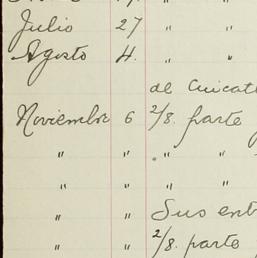 Julio 27 " "
Agosto 4. " "
de Cuicatl
Noviembre 6 2/8. parte
" " " "
" " " "
" " Sus ent
" " 2/8. parte